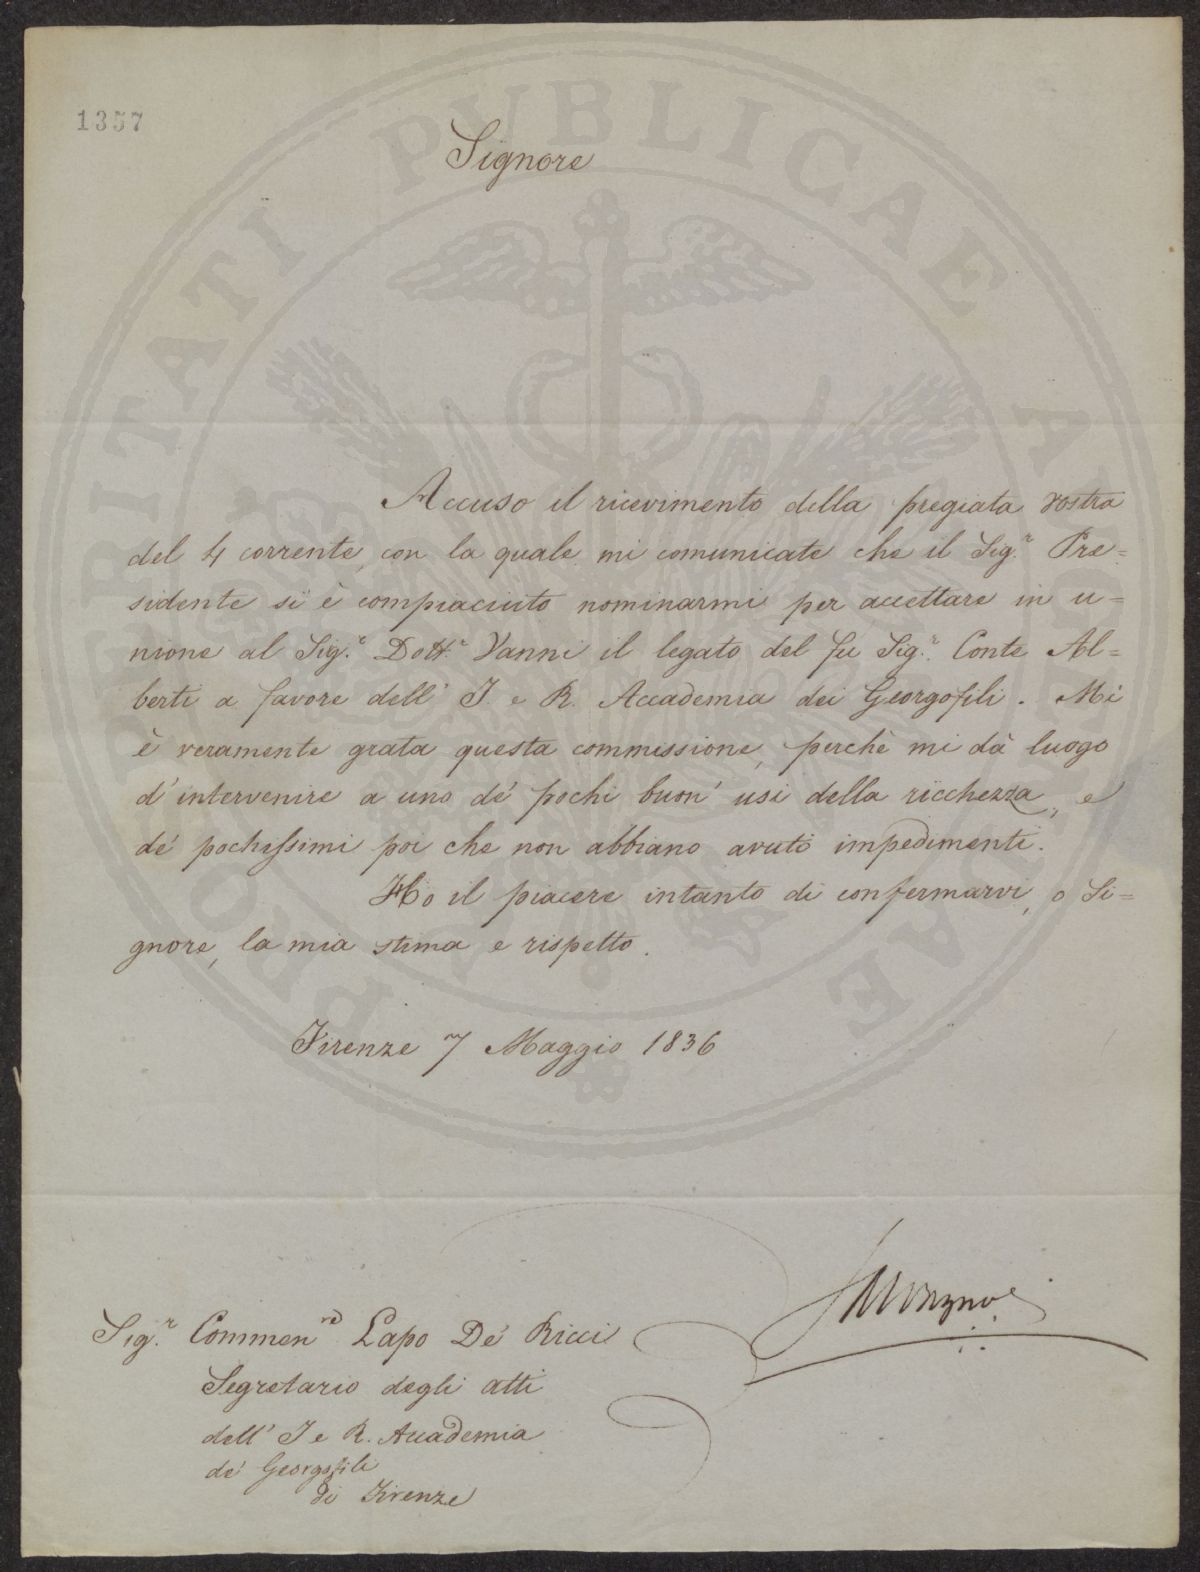 1357
Signore
Accuso il ricevimento della pregiata vostra
del 4 corrente, con la quale mi comunicate che il Sig.r Pre=
sidente si è compiaciuto nominarmi per accettare in u=
nione al Sig.r Dott.r Vanni il legato del fu Sig.r Conte Al=
berti a favore dell' I. e R. Accademia dei Georgofili. Mi
è veramente grata questa commissione, perchè mi dà luogo
d'intervenire a uno de' pochi buon' usi della ricchezza, e
de' pochissimi poi che non abbiano avuto impedimenti.
Ho il piacere intanto di confermarvi, o Si=
gnore, la mia stima e rispetto.
Firenze 7 Maggio 1836
Sig.r Commen.re Lapo De' Ricci
Segretario degli atti
dell' I e R. Accademia
de' Georgofili
di Firenze
PROSPERITATI PVBLICAE AVGENDAE